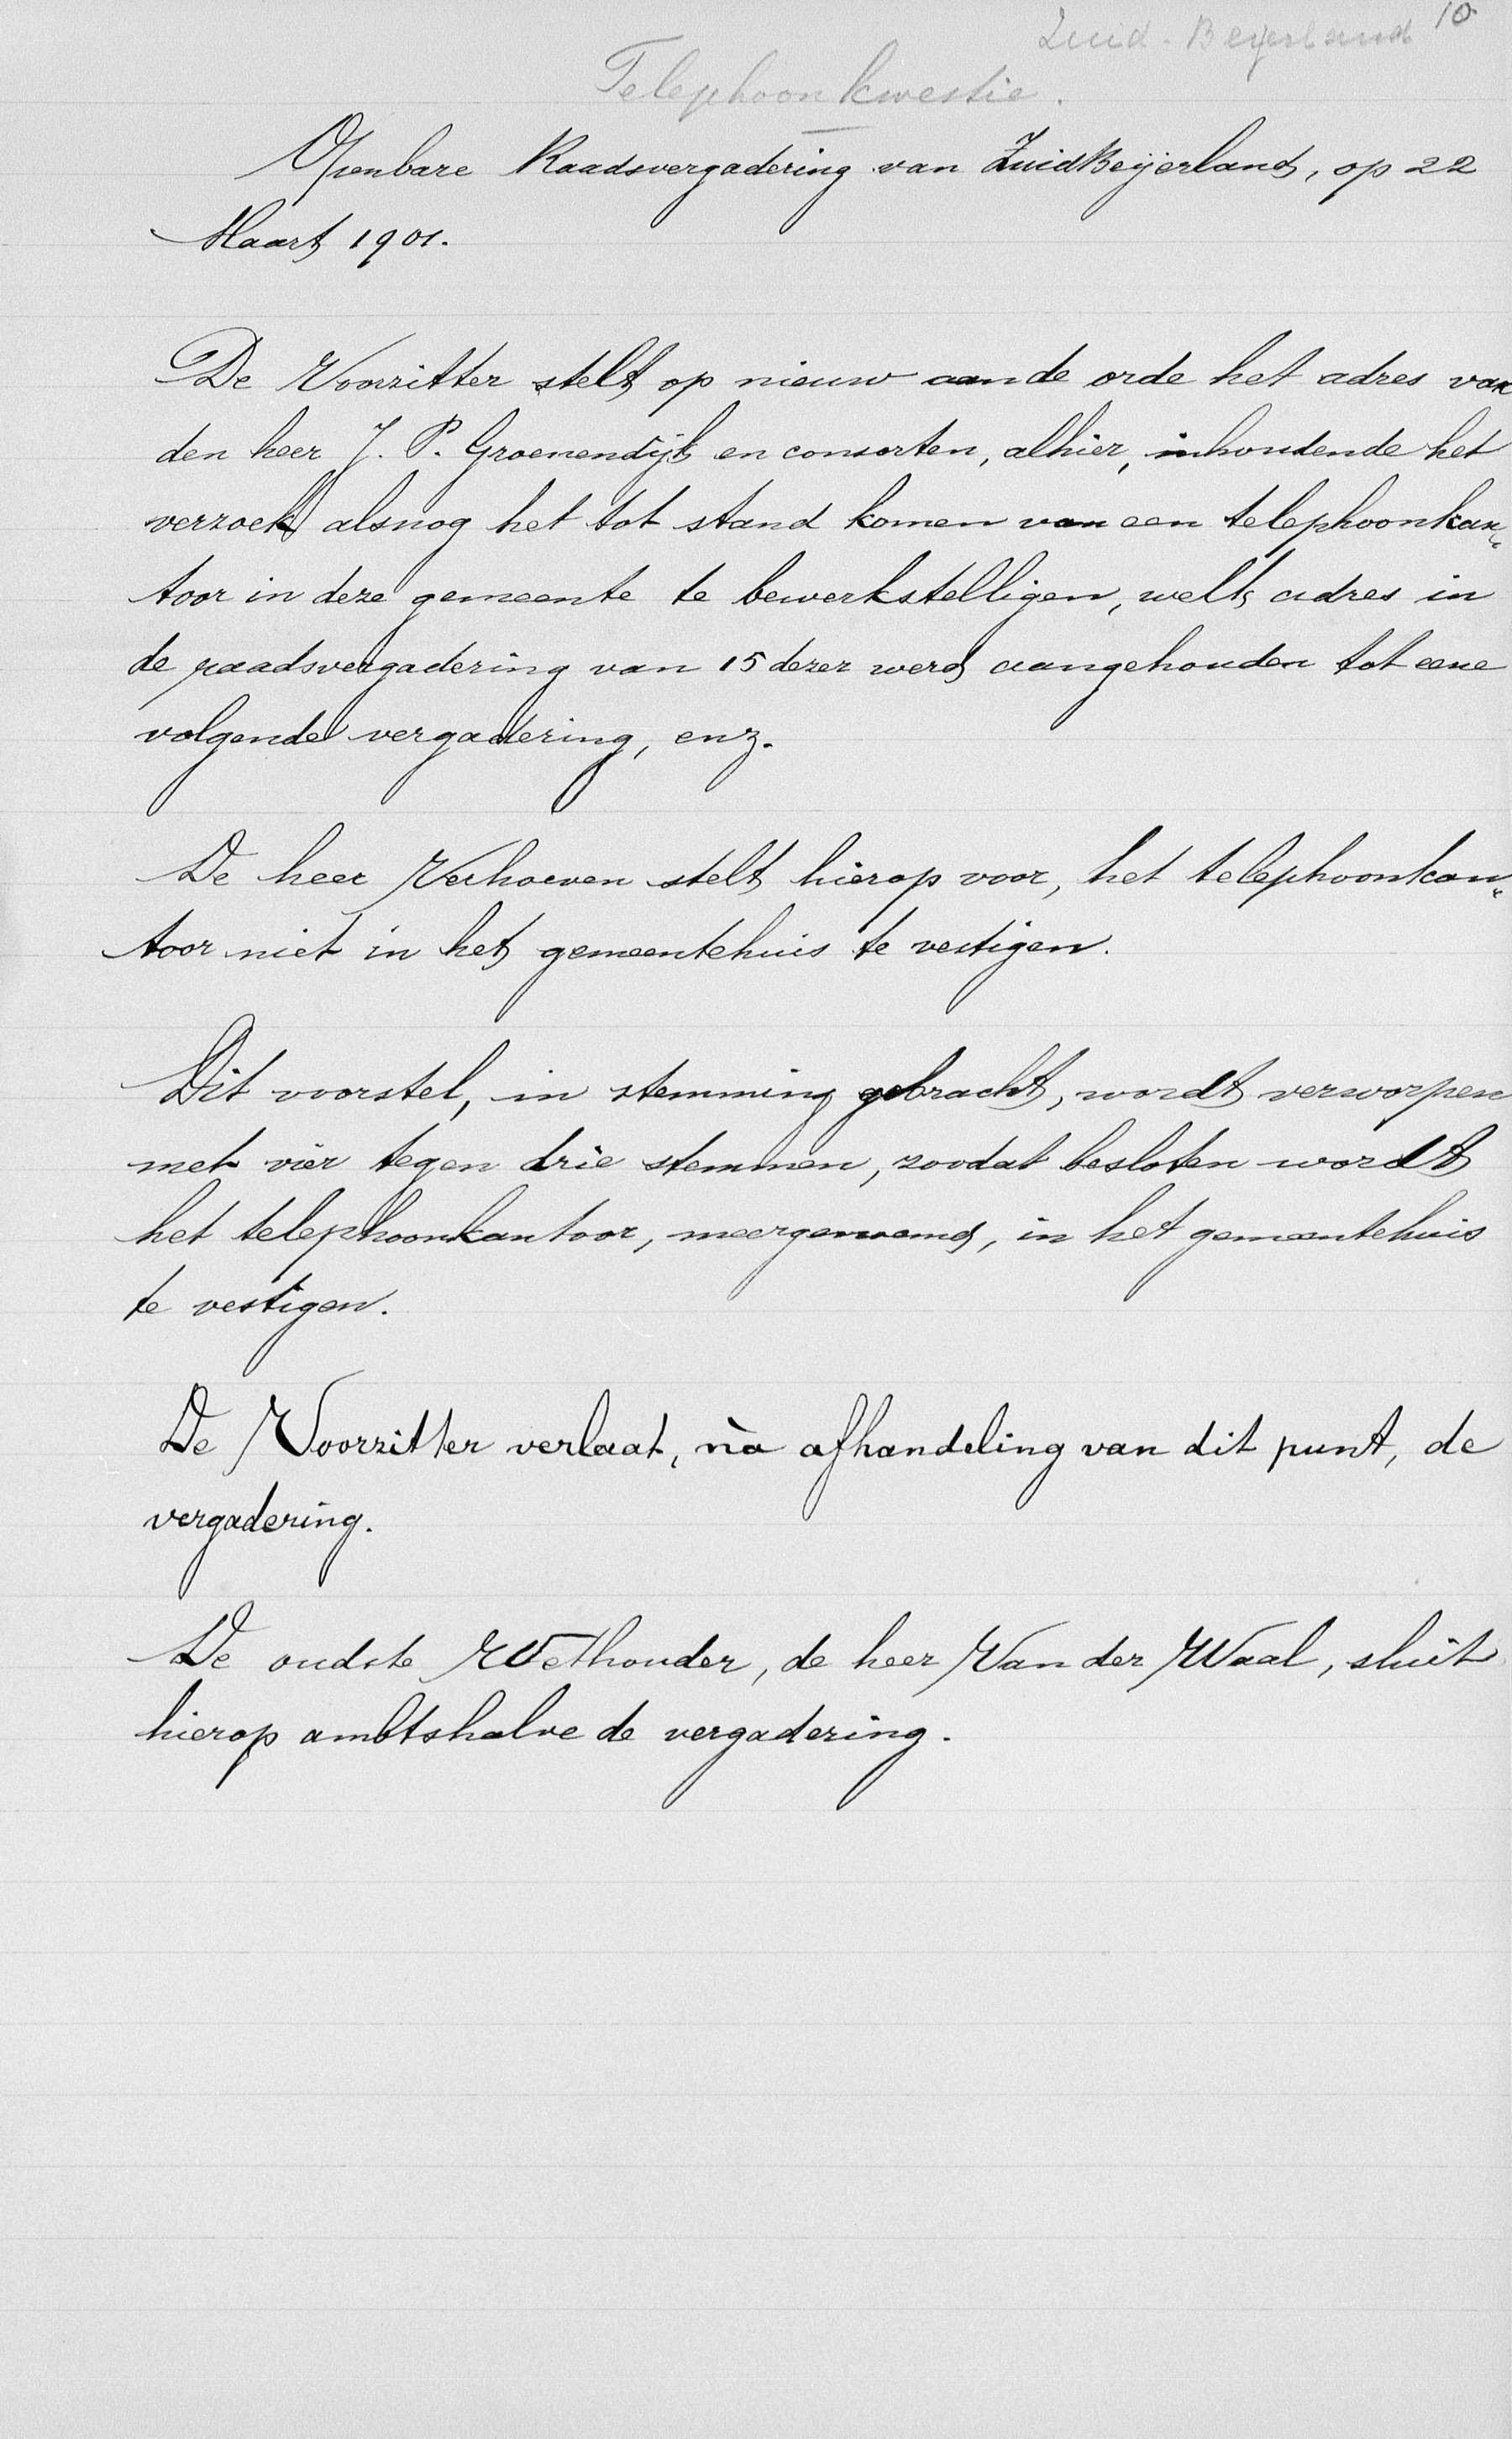 10
Zuid-Beijerland
Telephoonkwestie.
Openbare Raadsvergadering van Zuid Beijerland, op 22
Maart 1901.
De Voorzitter stelt op nieuw aan de orde het adres van
den heer J. P. Groenendijk en consorten, alhier, inhoudende het
verzoek alsnog het tot stand komen van een telephoonkan„
toor in deze gemeente te bewerkstelligen, welk adres in
de raadsvergadering van 15 dezer werd aangehouden tot eene
volgende vergadering, enz.
De heer Verhoeven stelt hierop voor, het telephoonkan„
toor niet in het gemeentehuis te vestigen.
Dit voorstel, in stemming gebracht, wordt verworpen
met vier tegen drie stemmen, zoodat besloten wordt
het telephoonkantoor, meergenoemd, in het gemeentehuis
te vestigen.
De Voorzitter verlaat, nà afhandeling van dit punt, de
vergadering.
De oudste Wethouder, de heer Van der Waal, sluit
hierop ambtshalve de vergadering.